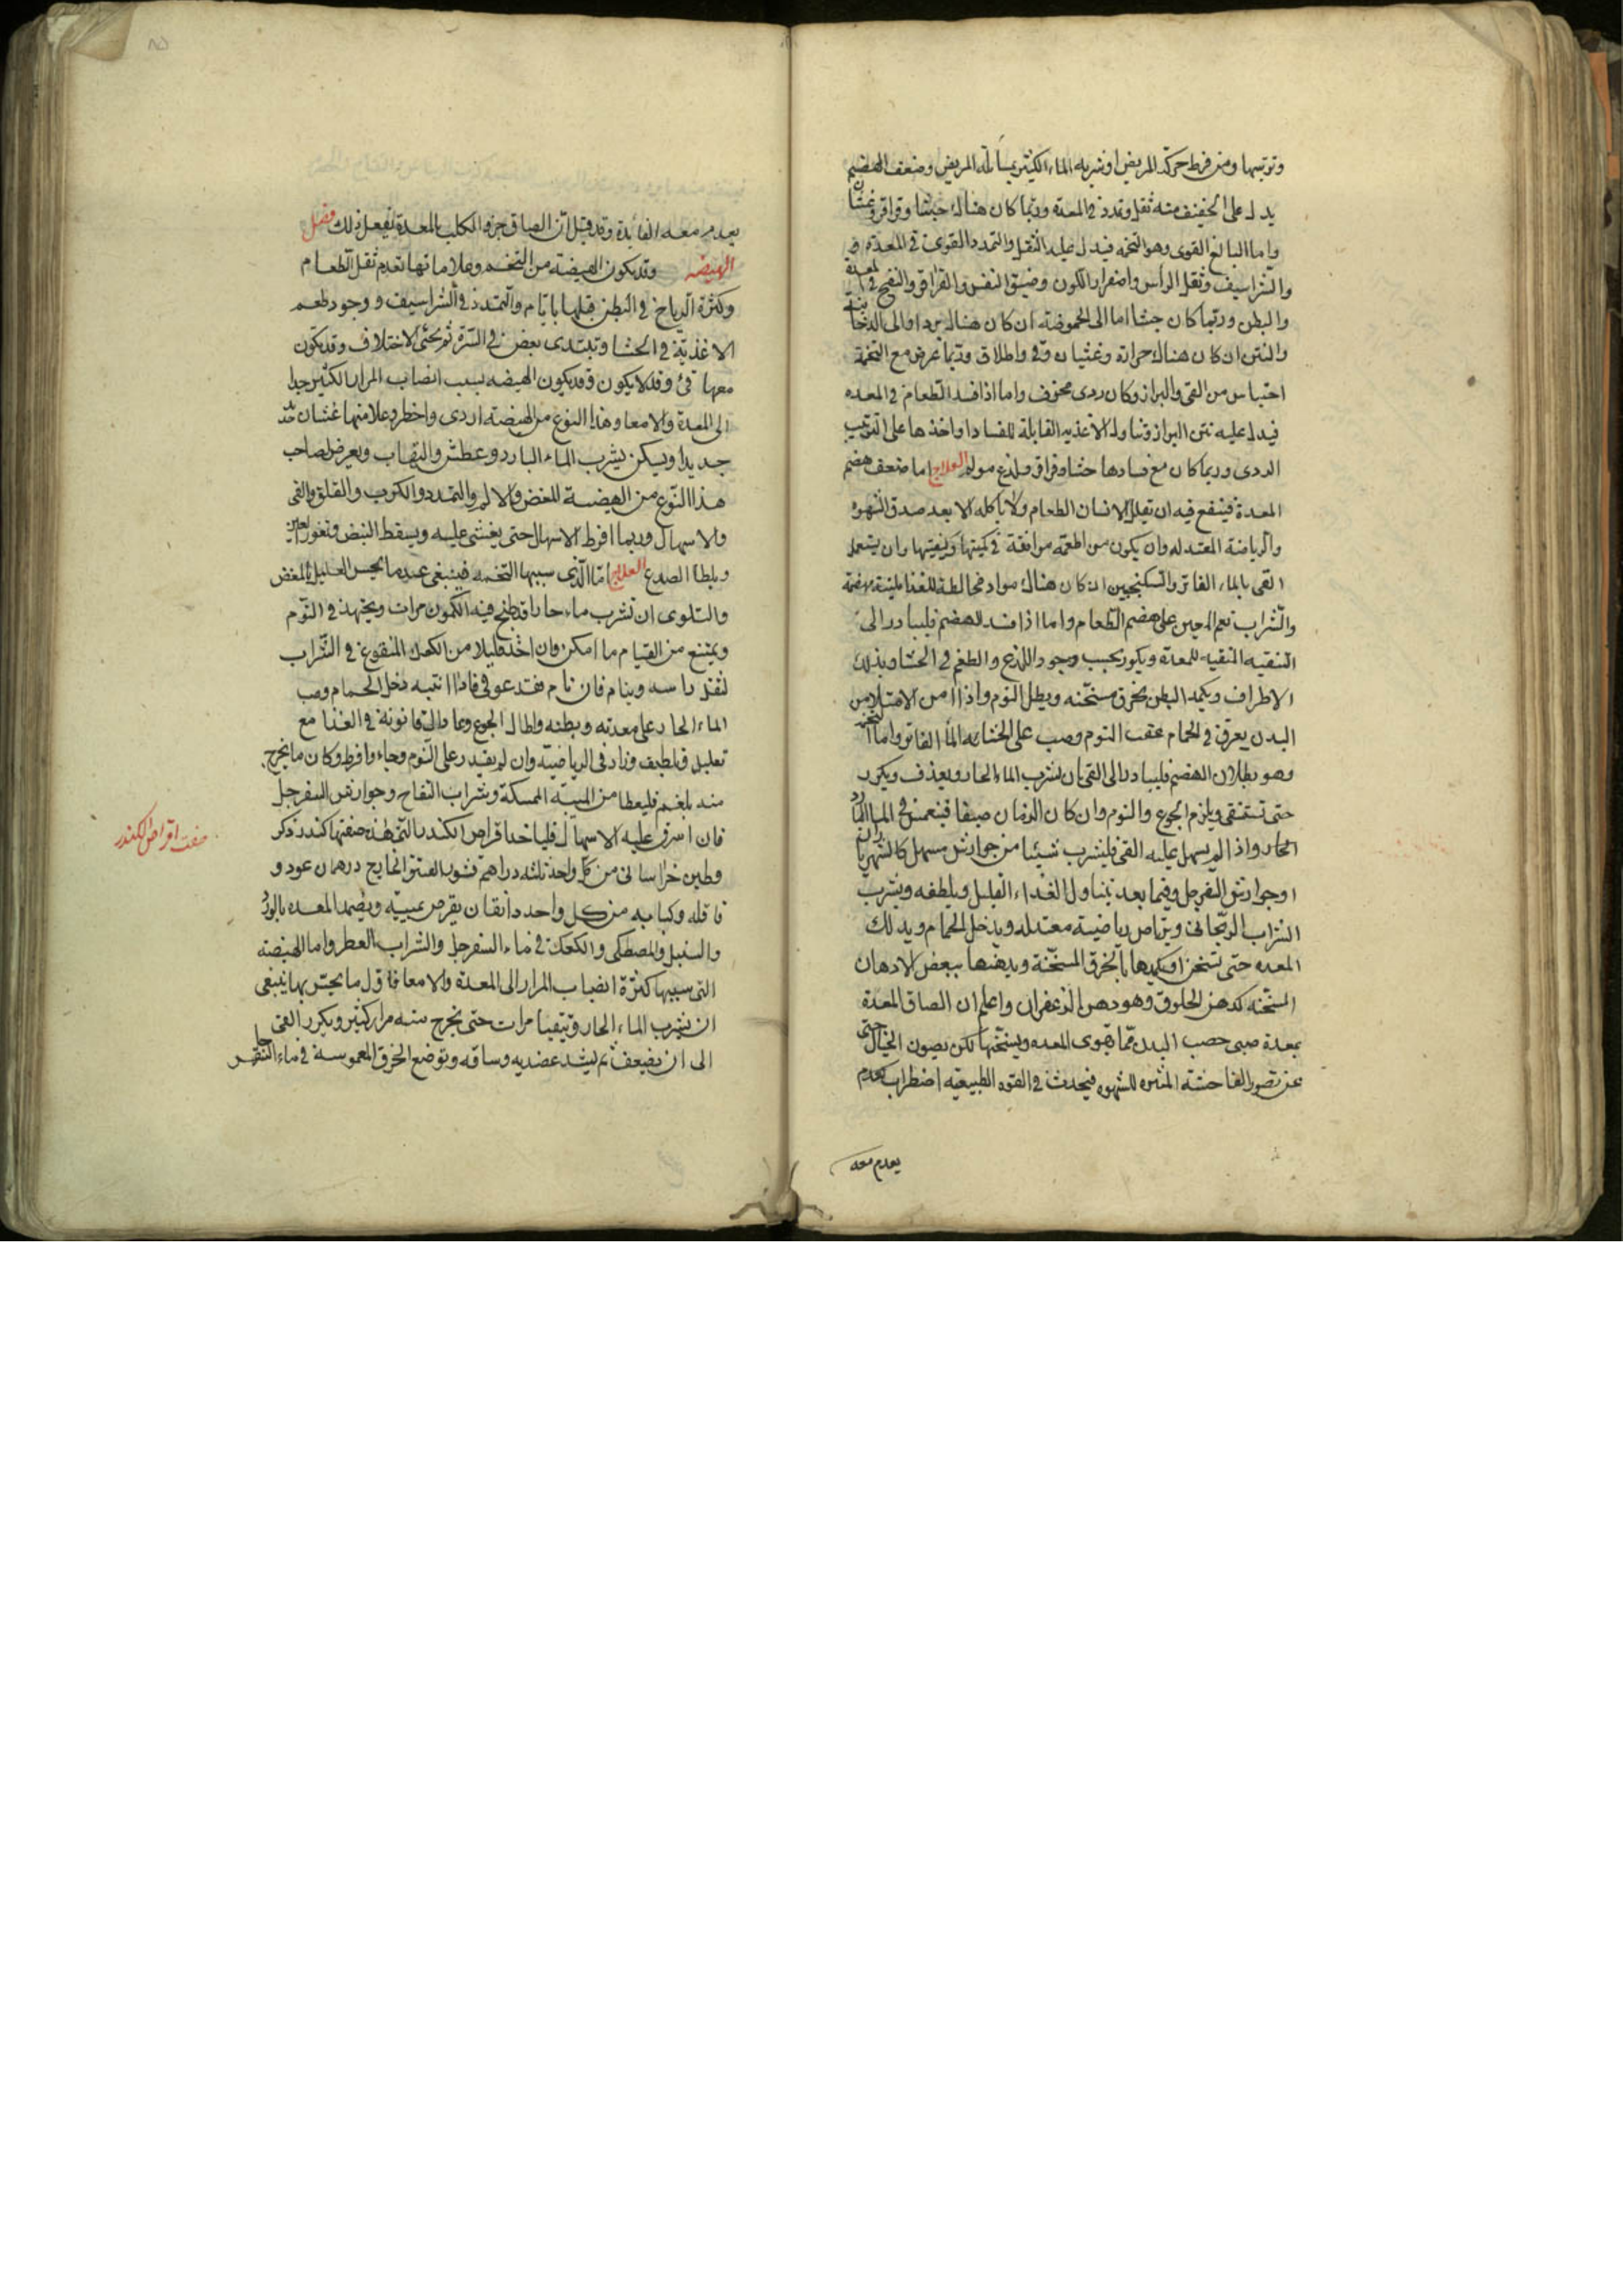 وترتيبها ومن فرط حركة المريض او شربه الماء الكثير يسأله المريض وضعف الهضم
يدل على الخفيف منه ثقل وتمدد في المعدة وربما كان هناك جشا وقراقر وغثيان
واما البالغ القوى وهو التخمه فيدل عليه الثقل والتمدد القوى في المعدة
والشراسيف وثقل الراس واصفرار اللون وضيق النفس والقراقر والنفخ في المعدة
والبطن وربما كان جشا اما الى الحموضة ان كان هناك برد او الى الدخانيه
والنتن ان كان هناك حرارة وغثيان وقى واطلاق وربما عرض مع التخمة
احتباس من القى والبراز وكان ردى مخوف واما اذا فسد الطعام في المعده
فيدل عليه نتن البراز وتناول الاغذيه القابلة للفساد او اخذها على الترتيب
الردى وربما كان مع فسادها جشا وقراقر ولذع مولم العلاج اما ضعف هضم
المعدة فينفع فيه ان يقلل الانسان الطعام ولا ياكله الا بعد صدق الشهوه
والرياضة المعتدله وان يكون من اطعمة موافقة في كميتها وكيفيتها وان يستعمل
القى بالماء الفاتر والسكنجبين ان كان هناك مواد مخالطة للغذا
والشراب نعم المعين على هضم الطعام واما اذا فسد الهضم فليبادر الى
التنقيه المنقيه للمعدة ويكون بحسب وجود اللذع والطعم في الجشا وبدلك
الاطراف ويكمد البطن بخرق مسخنه ويطل النوم واذا امن الامتلا من
البدن يعرق في الحمام عقب النوم وصب على الماء الفاتر واما التخمه
وهو بطلان الهضم فليبادر الى القى بان يشرب الماء الحار ويقذف ويكرر
حتى تستنقى ويلزم الجوع والنوم وان كان الزمان صيفا فينغمس في الماء البارد
الحار واذا لم يسهل عليه القى فليشرب شيئا من جوارش مسهل كالشهرياران
او جوارش السفرجل وفيما بعد يتناول الغداء القليل ويلطفه ويشرب
الشراب الريحانى ويرتاض رياضية معتدله ويدخل الحمام ويدلك
المعده حتى تسخن او يكمدها بالخرق المسخنة ويدهنها ببعض الادهان
المسخنه كدهن الخلوق وهو دهن الزعفران واعلم ان الصاق المعدة
بمعدة صبى خصب البدن مما يقوى المعده ويسخنها لكن يصون الخيال حتى
عن تصور الفاحشة المثيره للشهوه فيحدث في القوه الطبيعيه اضطراب يعدم
يعدم معه
يعدم معه الفائدة وقد قيل ان الصاق جرو الكلب بالمعدة يفعل ذلك فصل
الهيضه وقد يكون الهيضة من التخم وعلاماتها تقدم ثقل الطعام
وكثرة الرياح في البطن قبلها بايام والتمدد في الشراسيف ووجود طعم
الاغذية في الجشا ويبتدى بمغص في السرة ثم يجئى الاختلاف وقد يكون
معها قئ وقد لا يكون وقد يكون الهيضه بسبب انصاب المرار الكثير جدا
الى المعدة والامعا وهذا النوع من الهيضة اردى واخطر وعلامتها غثيان
جديدا ويسكن بشرب الماء البارد وعطش والتهاب ويعرض لصاحب
هذا النوع من الهيضة المغص والالم والتمدد والكرب والقلق والقى
والاسهال وربما افرط الاسهال حتى يغشى عليه ويسقط النبض وتغور العين
ويلطا الصدغ العلاج اما الذى سببها التخمه فينبغى عندما يحس العليل بالمغص
والتلوى ان تشرب ماء حارا قد طبخ فيه الكمون مرات ويجتهد في النوم
ويمتنع من القيام ما امكن وان اخذ قليلا من الكعك المنقوع في الشراب
لثقل راسه وينام فان نام فقد عوفى فاذا انتبه دخل الحمام وصب
الماء الحار على معدته وبطنه واطال الجوع وعاد الى قانونه في الغذا مع
تقليل وتلطيف وزاد في الرياضية وان لم يقدر على النوم وجاء وافرط وكان ما يخرج
منه بلغم فليعطا من الميبه الممسكة وشراب التفاح وجوارش السفرجل
فان اسرف عليه الاسهال فلياخذ اقراص الكندر التى هذه صفتها كندر ذكر
وطين خراسانى من كل واحد ثلثه دراهم قشور الفستق الخارج درهمان عود و
قاقله وكبابه من كل واحد دانقان يقرص بميبه ويضمد المعده بالورد
والسنبل والمصطكى والكعك في ماء السفرجل والشراب العطر واما الهيضه
التى سببها كثرة انصباب المرار الى المعدة والامعا فاول ما يحس بها ينبغى
ان يشرب الماء الحار وتتقيا مرات حتى يخرج منه مرار كثير ويكرر القى
الى ان يضعف ثم ليشد عضديه وساقه ويوضع الخرق المغموسة في ماء
صفت اقراص الكندر